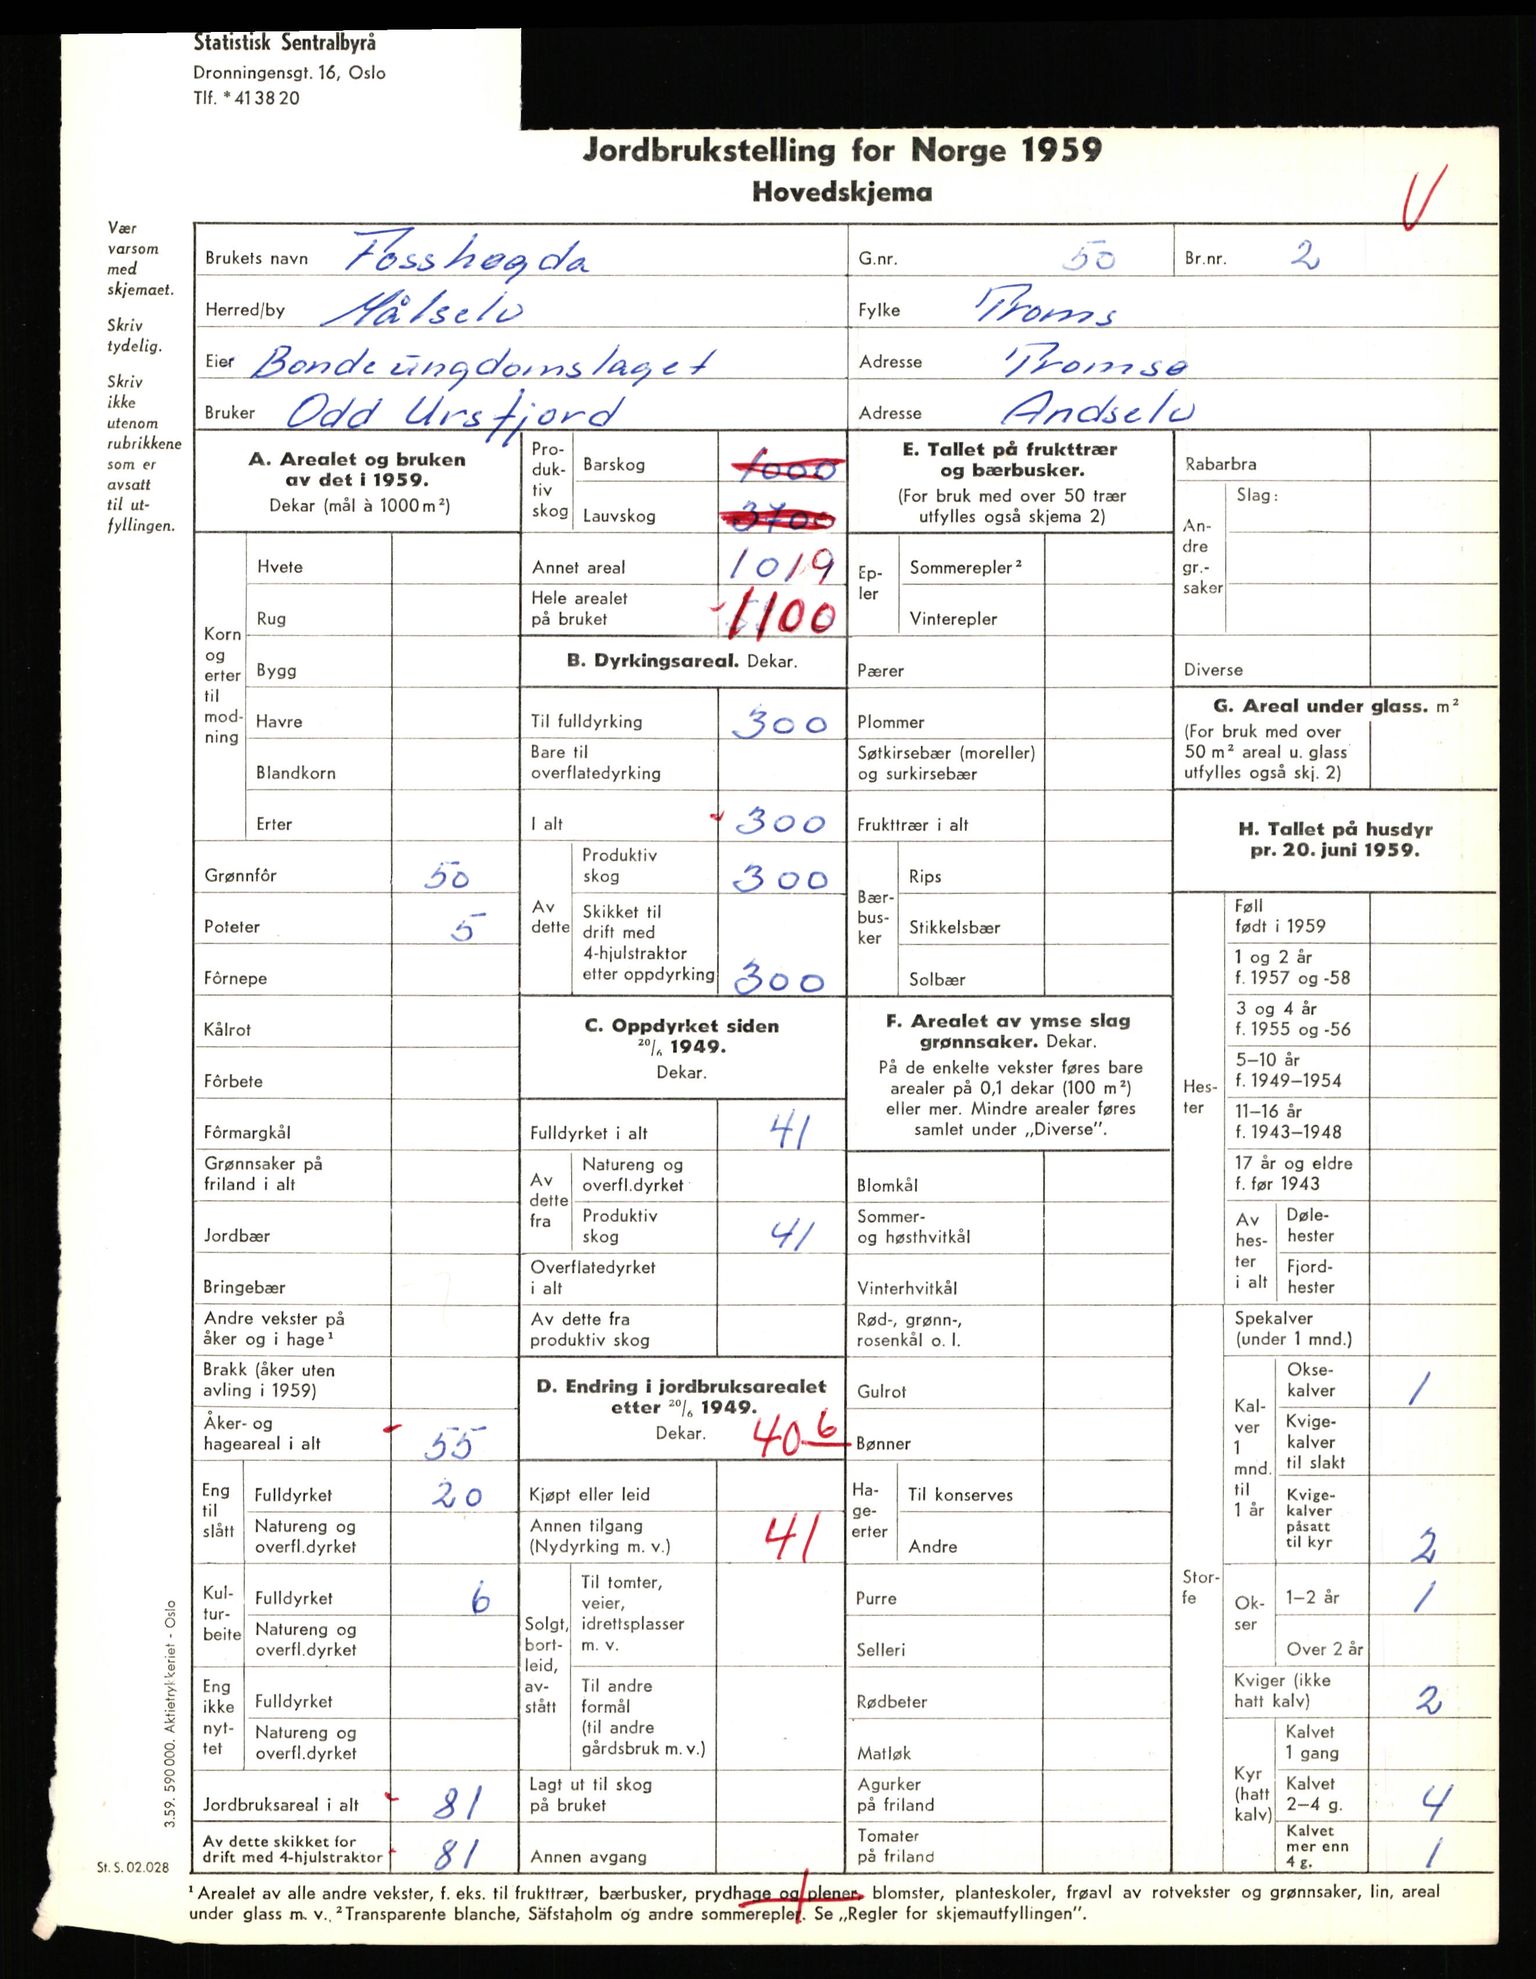 Statistisk Sentralbyrå
Dronningensgt. 16, Oslo
Tlf. * 41 38 20
Jordbrukstelling for Norge 1959
Hovedskjema
V
Vær
varsom
med
skjemaet.
Skriv
tydelig.
Skriv
ikke
utenom
rubrikkene
som er
avsatt
til ut-
fyllingen.
Brukets navn Fosshøgda G.nr. 50 Br.nr. 2
Herred/by Målselv Fylke Troms
Eier Bondeungdomslaget Adresse Tromsø
Bruker Odd Ursfjord Adresse Andselv
A. Arealet og bruken
av det i 1959.
Dekar (mål à 1000 m²)
Korn
og
erter
til
mod-
ning
Hvete
Rug
Bygg
Havre
Blandkorn
Erter
Grønnfôr 50
Poteter 5
Fôrnepe
Kålrot
Fôrbete
Fôrmargkål
Grønnsaker på
friland i alt
Jordbær
Bringebær
Andre vekster på
åker og i hage¹
Brakk (åker uten
avling i 1959)
Åker- og
hageareal i alt 55
Eng
til
slått
Fulldyrket 20
Natureng og
overfl.dyrket
Kul-
tur-
beite
Fulldyrket 6
Natureng og
overfl.dyrket
Eng
ikke
nyt-
tet
Fulldyrket
Natureng og
overfl.dyrket
Jordbruksareal i alt 81
Av dette skikket for
drift med 4-hjulstraktor 81
Pro-
duk-
tiv
skog
Barskog 1000
Lauvskog 3700
Annet areal 1019
Hele arealet
på bruket 1100
B. Dyrkingsareal. Dekar.
Til fulldyrking 300
Bare til
overflatedyrking
I alt 300
Av
dette
Produktiv
skog 300
Skikket til
drift med
4-hjulstraktor
etter oppdyrking 300
C. Oppdyrket siden
20/6 1949.
Dekar.
Fulldyrket i alt 41
Av
dette
fra
Natureng og
overfl.dyrket
Produktiv
skog 41
Overflatedyrket
i alt
Av dette fra
produktiv skog
D. Endring i jordbruksarealet
etter 20/6 1949.
Dekar. 40 6
Kjøpt eller leid
Annen tilgang
(Nydyrking m. v.) 41
Solgt,
bort-
leid,
av-
stått
Til tomter,
veier,
idrettsplasser
m. v.
Til andre
formål
(til andre
gårdsbruk m. v.)
Lagt ut til skog
på bruket
Annen avgang
E. Tallet på frukttrær
og bærbusker.
(For bruk med over 50 trær
utfylles også skjema 2)
Ep-
ler
Sommerepler²
Vinterepler
Pærer
Plommer
Søtkirsebær (moreller)
og surkirsebær
Frukttrær i alt
Bær-
bus-
ker
Rips
Stikkelsbær
Solbær
F. Arealet av ymse slag
grønnsaker. Dekar.
På de enkelte vekster føres bare
arealer på 0,1 dekar (100 m²)
eller mer. Mindre arealer føres
samlet under „Diverse”.
Blomkål
Sommer-
og høsthvitkål
Vinterhvitkål
Rød-, grønn-,
rosenkål o. l.
Gulrot
Bønner
Ha-
ge-
erter
Til konserves
Andre
Purre
Selleri
Rødbeter
Matløk
Agurker
på friland
Tomater
på friland
Rabarbra
An-
dre
gr.-
saker
Slag:
Diverse
G. Areal under glass. m²
(For bruk med over
50 m² areal u. glass
utfylles også skj. 2)
H. Tallet på husdyr
pr. 20. juni 1959.
Hes-
ter
Føll
født i 1959
1 og 2 år
f. 1957 og -58
3 og 4 år
f. 1955 og -56
5–10 år
f. 1949–1954
11–16 år
f. 1943–1948
17 år og eldre
f. før 1943
Av
hes-
ter
i alt
Døle-
hester
Fjord-
hester
Stor-
fe
Spekalver
(under 1 mnd.)
Kal-
ver
1
mnd.
til
1 år
Okse-
kalver 1
Kvige-
kalver
til slakt
Kvige-
kalver
påsatt
til kyr 2
Ok-
ser
1–2 år 1
Over 2 år
Kviger (ikke
hatt kalv) 2
Kyr
(hatt
kalv)
Kalvet
1 gang
Kalvet
2–4 g. 4
Kalvet
mer enn
4 g. 1
3.59. 590 000. Aktietrykkeriet - Oslo
St. S. 02.028
¹ Arealet av alle andre vekster, f. eks. til frukttrær, bærbusker, prydhage og plener, blomster, planteskoler, frøavl av rotvekster og grønnsaker, lin, areal
under glass m. v.. ² Transparente blanche, Säfstaholm og andre sommerepler. Se „Regler for skjemautfyllingen”.